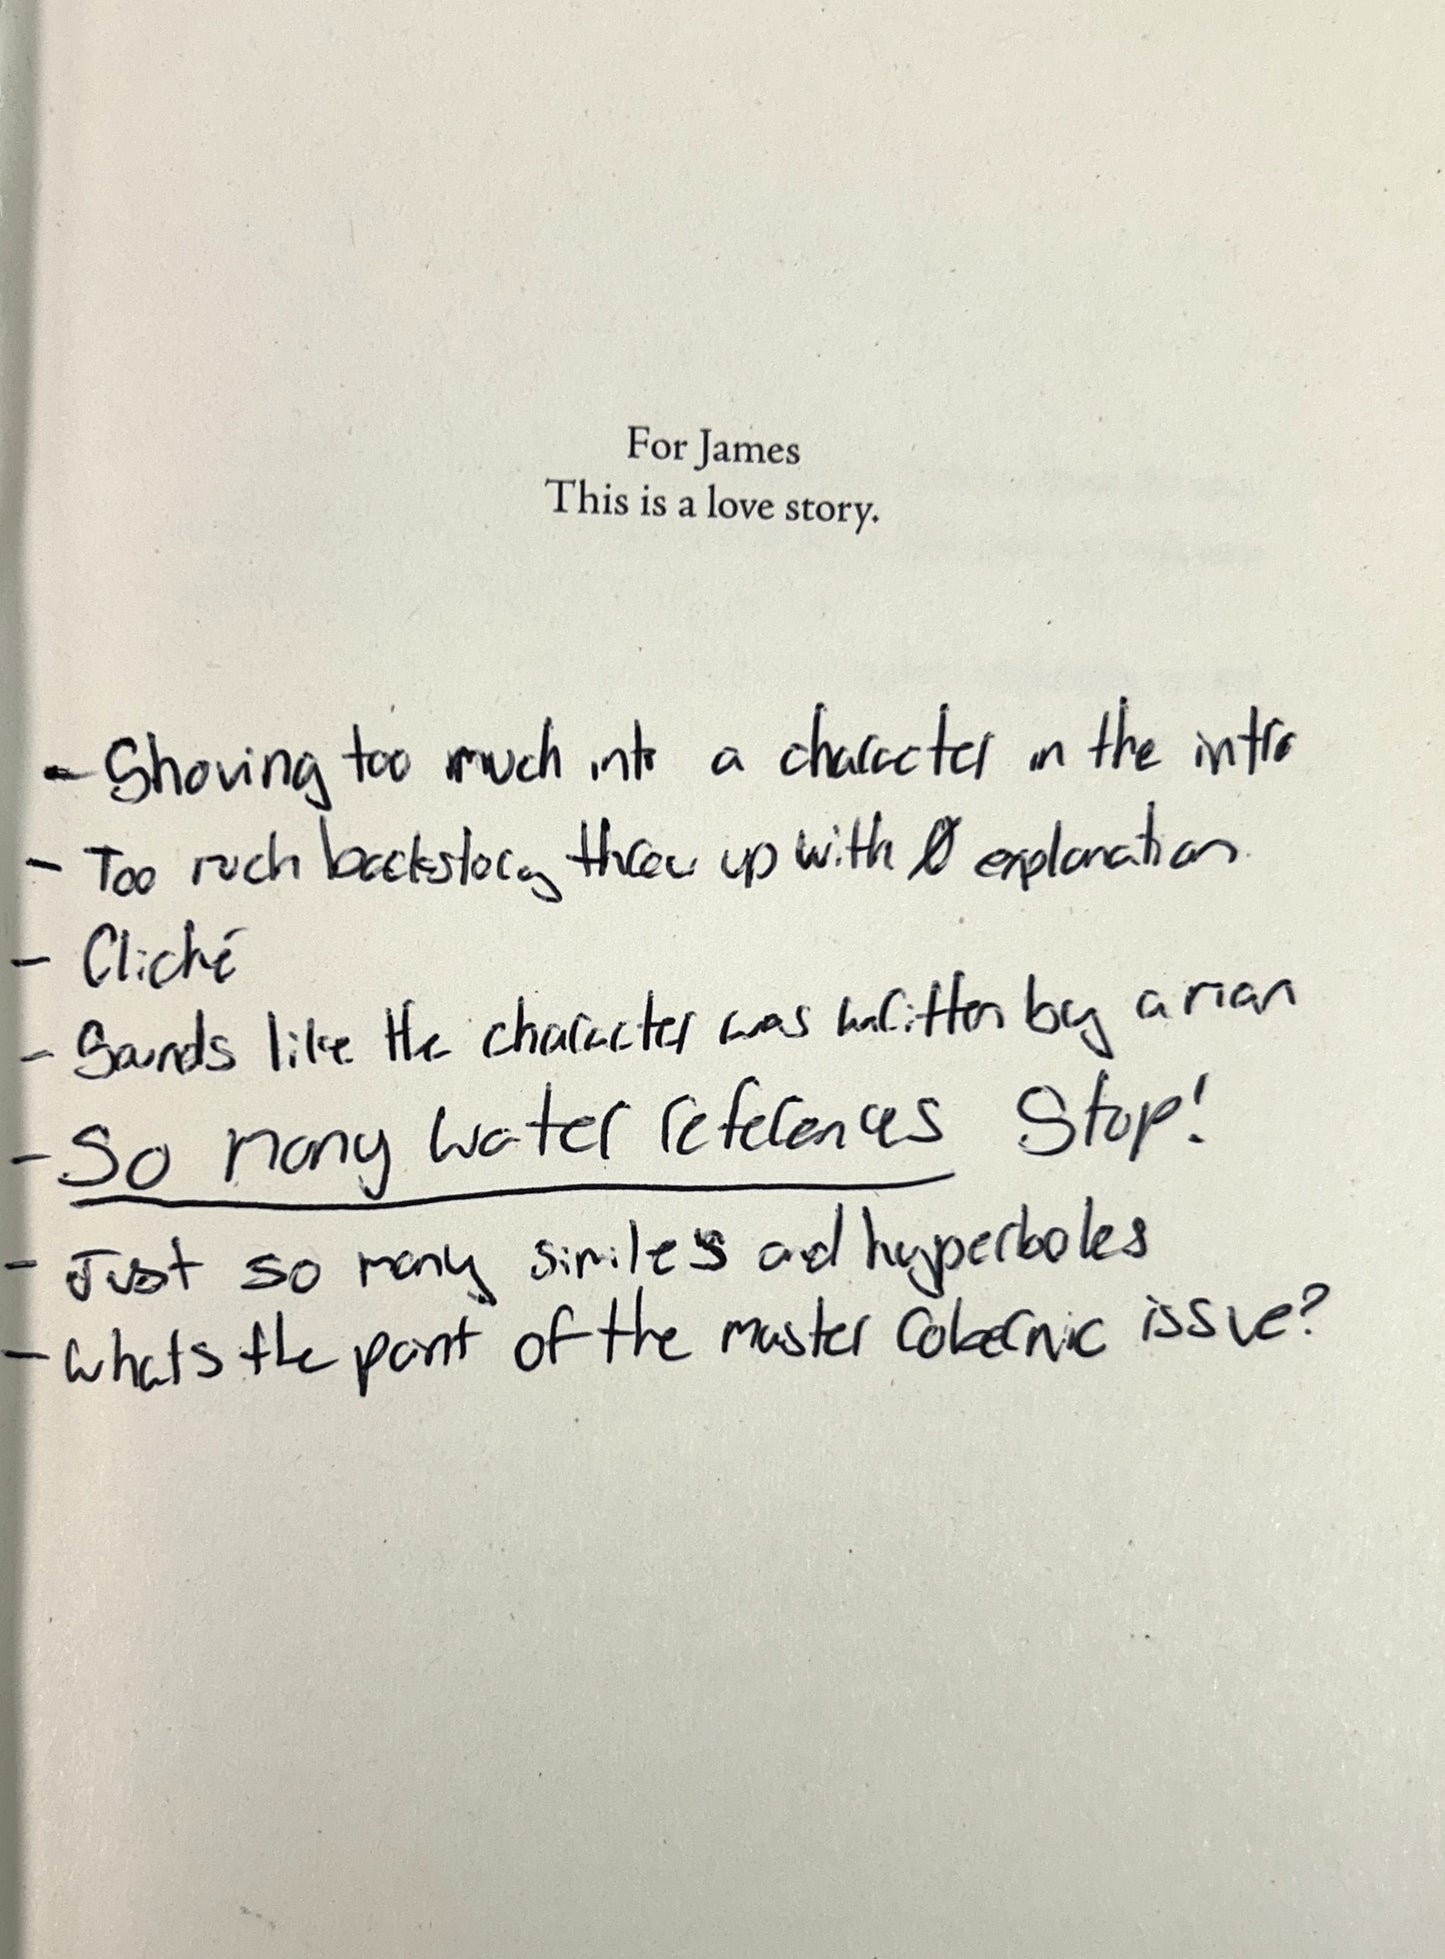 For James
This is a love story.
- Shoving too much into a character in the intro
- Too much backstory threw up with Ø explanation
- Cliché
- Sounds like the character was written by a man
- So many water references Stop!
- Just so many similes and hyperboles
- Whats the point of the master Cobernic issue?